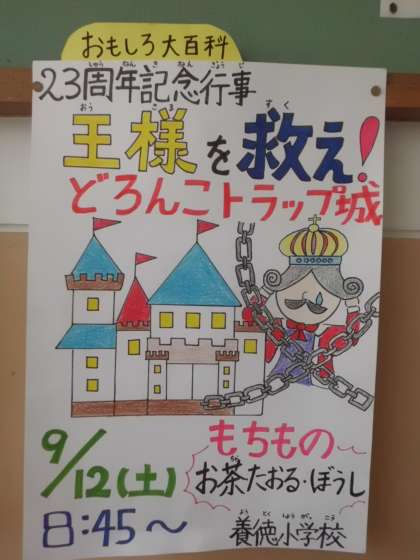 おもしろ大百科
23周年記念行事
王様を救え!
どろんこトラップ城
9/12(土)
8:45〜
もちもの
お茶・たおる・ぼうし
養徳小学校